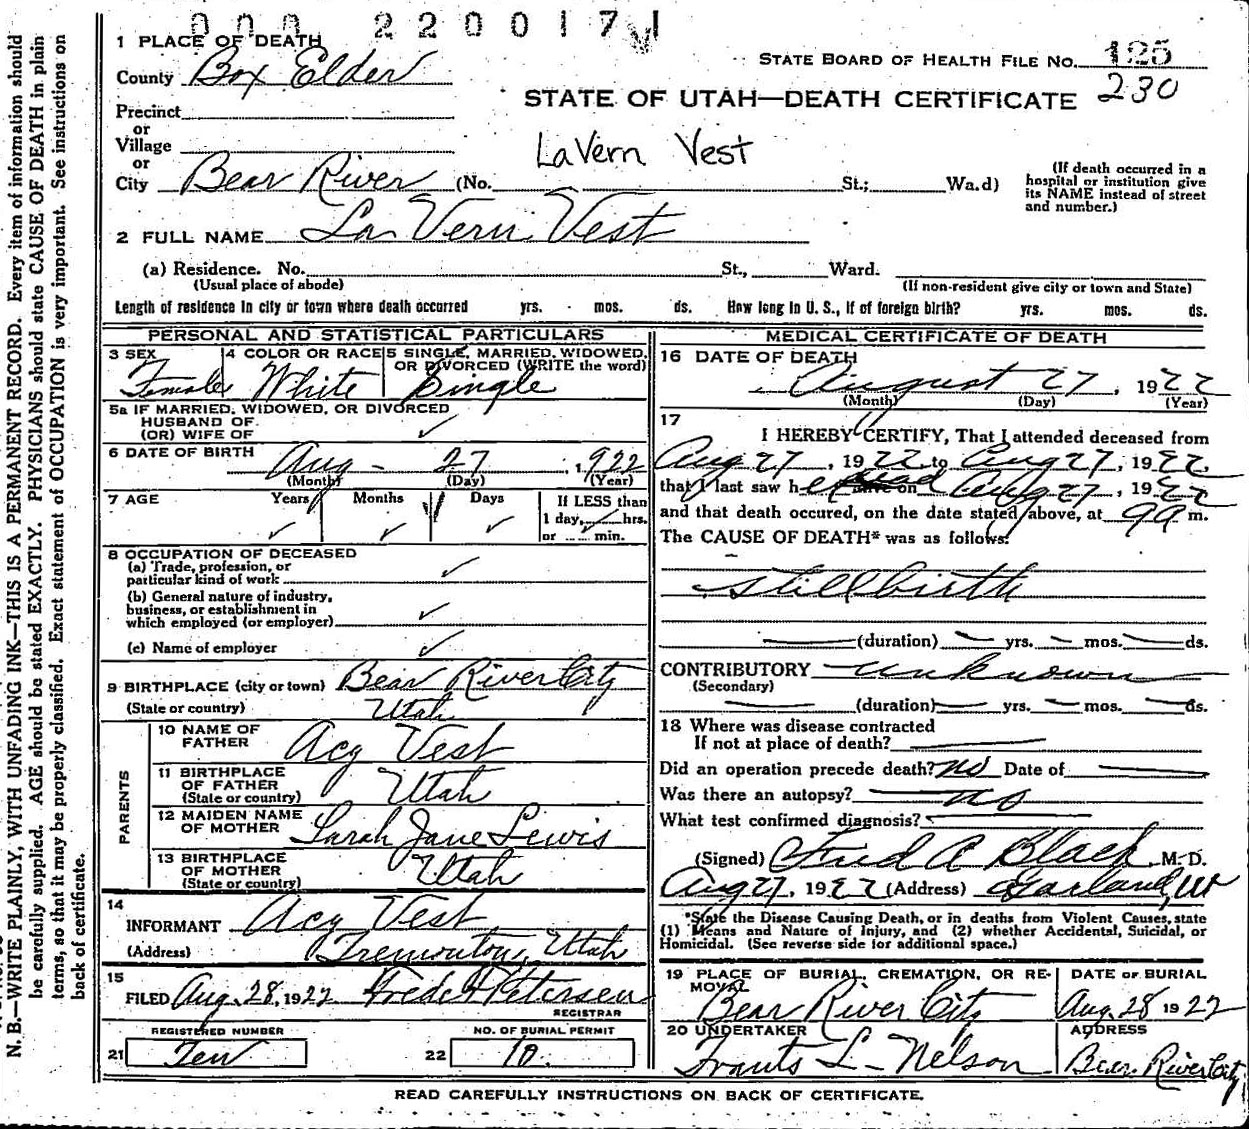 000 220017
1 PLACE OF DEATH
County Box Elder
STATE BOARD OF HEALTH FILE NO. 125
230
STATE OF UTAH—DEATH CERTIFICATE
Precinct
or
Village
or
LaVern Vest
City Bear River (No. St.; Wa.d)
(If death occurred in a hospital or institution give its NAME instead of street and number.)
2 FULL NAME La Vern Vest
(a) Residence. No. St., Ward.
(Usual place of abode) (If non-resident give city or town and State)
Length of residence in city or town where death occurred yrs. mos. ds. How long in U. S., if of foreign birth? yrs. mos. ds.
PERSONAL AND STATISTICAL PARTICULARS
3 SEX Female
4 COLOR OR RACE White
5 SINGLE, MARRIED, WIDOWED, OR DIVORCED (WRITE the word) Single
5a IF MARRIED, WIDOWED, OR DIVORCED
HUSBAND OF
(OR) WIFE OF
6 DATE OF BIRTH Aug - 27, 1922
(Month) (Day) (Year)
7 AGE Years Months Days If LESS than
1 day, hrs.
or min.
8 OCCUPATION OF DECEASED
(a) Trade, profession, or
particular kind of work
(b) General nature of industry,
business, or establishment in
which employed (or employer)
(c) Name of employer
9 BIRTHPLACE (city or town) Bear River City
(State or country) Utah
PARENTS
10 NAME OF FATHER Acy Vest
11 BIRTHPLACE OF FATHER (State or country) Utah
12 MAIDEN NAME OF MOTHER Sarah Jane Lewis
13 BIRTHPLACE OF MOTHER (State or country) Utah
14
INFORMANT Acy Vest
(Address) Tremonton, Utah
15
FILED Aug. 28, 1922 Fred Petersen
REGISTRAR
REGISTERED NUMBER NO. OF BURIAL PERMIT
21 Ten 22 10
MEDICAL CERTIFICATE OF DEATH
16 DATE OF DEATH
August 27, 1922
(Month) (Day) (Year)
17
I HEREBY CERTIFY, That I attended deceased from
Aug 27, 1922, to Aug 27, 1922,
that I last saw her dead alive on Aug 27, 1922
and that death occured, on the date stated above, at 9 a m.
The CAUSE OF DEATH* was as follows:
stillbirth
(duration) yrs. mos. ds.
CONTRIBUTORY unknown
(Secondary)
(duration) yrs. mos. ds.
18 Where was disease contracted
If not at place of death?
Did an operation precede death? no Date of
Was there an autopsy? no
What test confirmed diagnosis?
(Signed) Fred A Black, M. D.
Aug 27, 1922 (Address) Garland, Ut
*State the Disease Causing Death, or in deaths from Violent Causes, state
(1) Means and Nature of Injury, and (2) whether Accidental, Suicidal, or
Homicidal. (See reverse side for additional space.)
19 PLACE OF BURIAL, CREMATION, OR REMOVAL
Bear River City
DATE OF BURIAL
Aug. 28 1922
20 UNDERTAKER
Frants L. Nelson
ADDRESS
Bear River City
READ CAREFULLY INSTRUCTIONS ON BACK OF CERTIFICATE.
N. B.—WRITE PLAINLY, WITH UNFADING INK—THIS IS A PERMANENT RECORD. Every item of information should
be carefully supplied. AGE should be stated EXACTLY. PHYSICIANS should state CAUSE OF DEATH in plain
terms, so that it may be properly classified. Exact statement of OCCUPATION is very important. See instructions on
back of certificate.